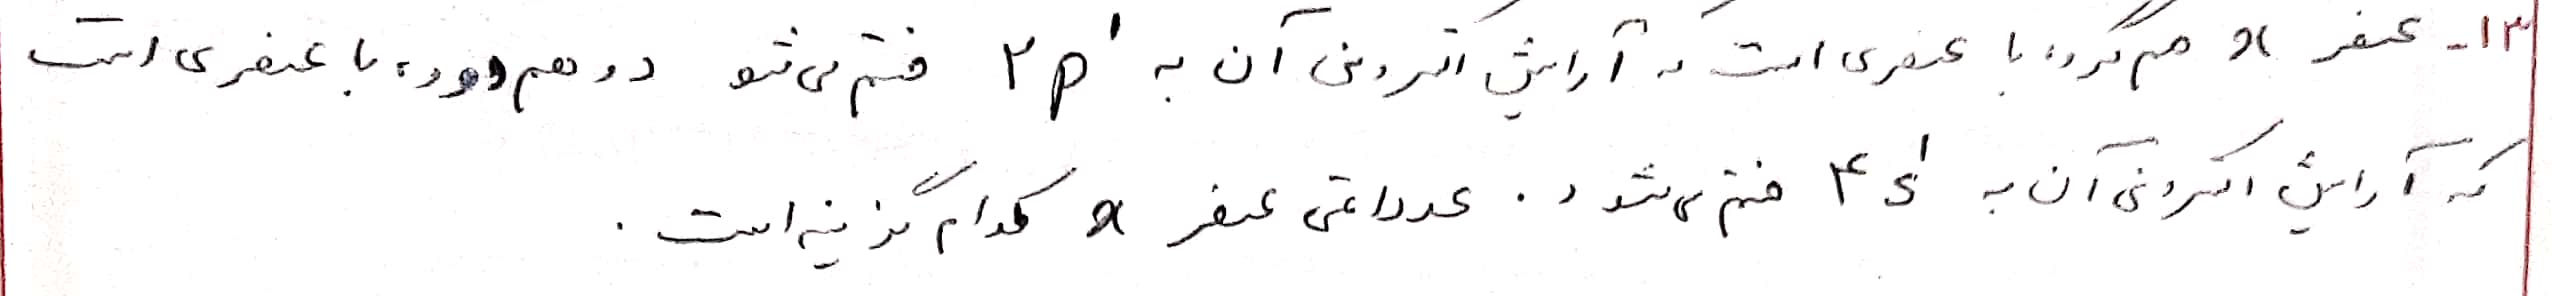 ۱۳- عنصر x هم گروه با عنصری است که آرایش الکترونی آن به 2p¹ ختم می شو د و هم دوره با عنصری است
که آرایش الکترونی آن به 4s¹ ختم می شو د . عدد اتمی عنصر x کدام گزینه است .